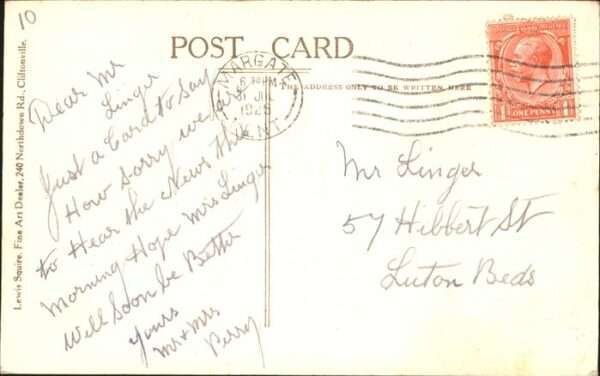 10
POST CARD
THE ADDRESS ONLY TO BE WRITTEN HERE
MARGATE
6 30PM
31 JUL
KENT
ONE PENNY
Dear Mr
Linger
Just a Card to say
How sorry we are
to Hear the News this
Morning Hope Mrs Linger
Will Soon be Better
Yours
Mr & Mrs
Perry
Mr Linger
57 Hibbert St
Luton Beds
Lewis Squire, Fine Art Dealer, 240 Northdown Rd., Cliftonville.